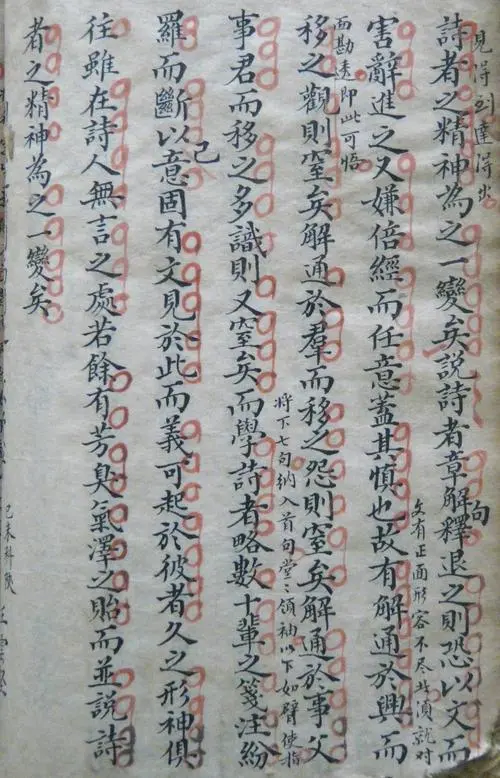 見得到達得出
詩者之精神為之一變矣說詩者章句解釋退之則恐以文而
文有正面形容不尽者須就对
害辭進之又嫌倍經而任意蓋其慎也故有解通於興而
面勘透即此可悟
移之觀則窒矣解通於羣而移之怨則窒矣解通於事父
將下七句納入首句堂々領袖以下如臂使指
事君而移之多識則又窒矣而學詩者略數十輩之箋注紛
羅而斷以己意固有文見於此而義可起於彼者久之形神俱
往雖在詩人無言之處若餘有芳臭氣澤之貽而並說詩
者之精神為之一變矣
己未科